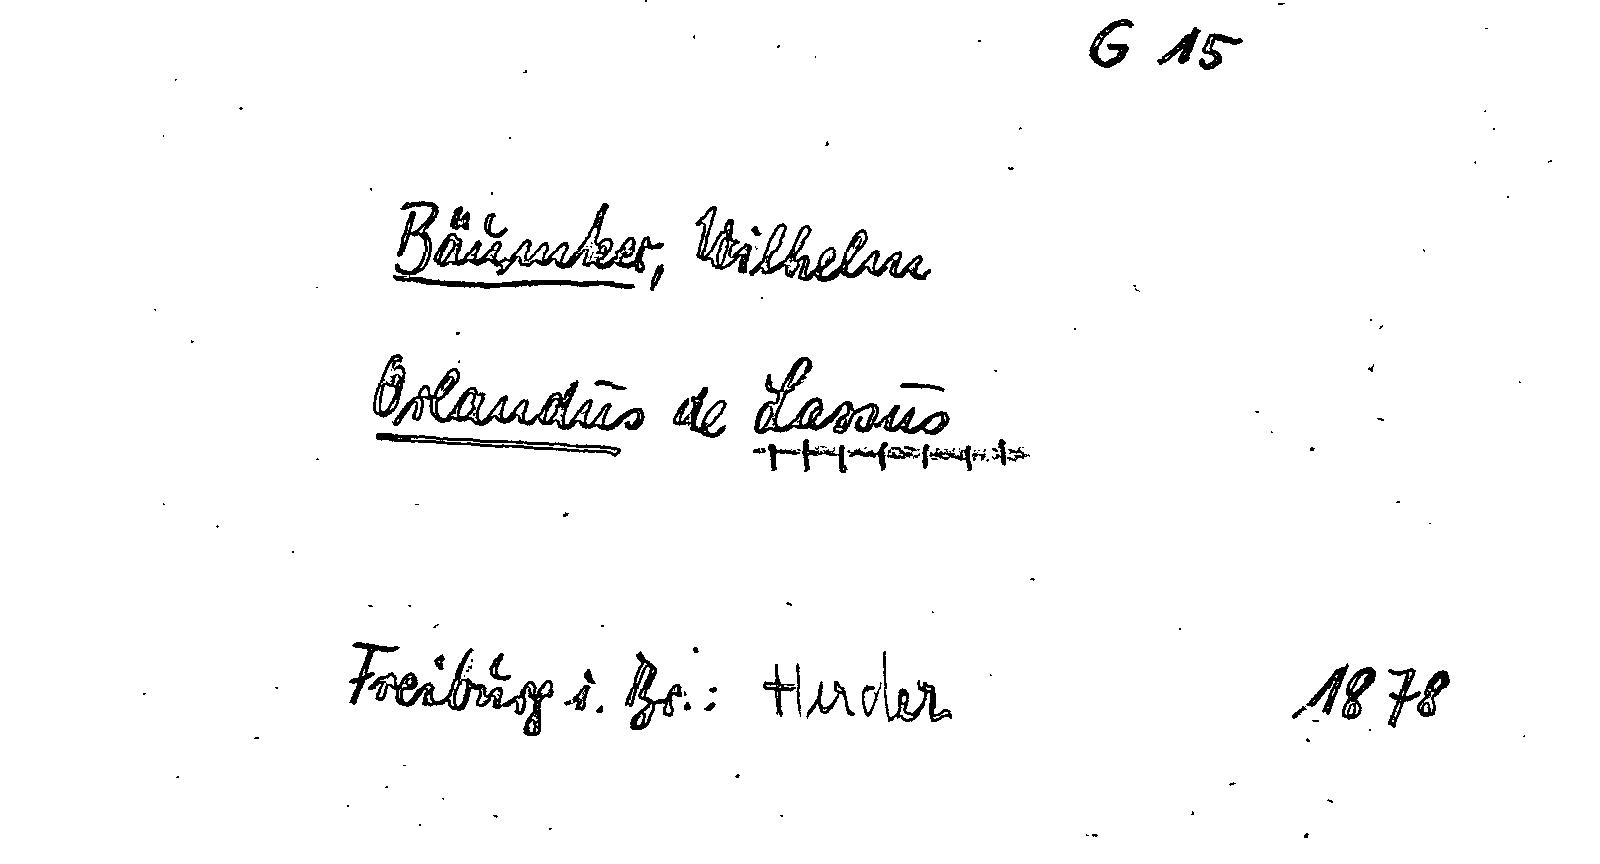 G 15
Bäumker, Wilhelm
Orlandus de Lassus
Freiburg i. Br.: Herder 1878